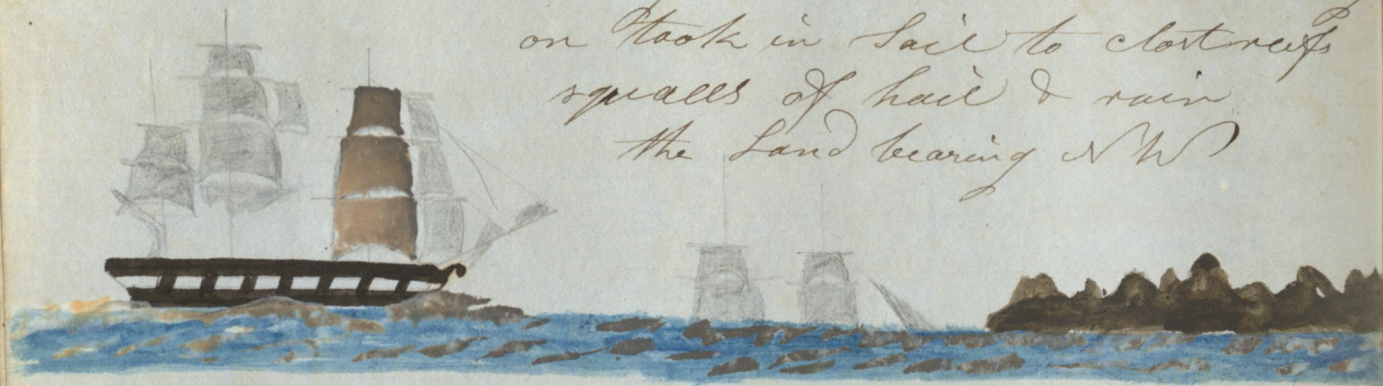 on took in Sail to clost reefs
squalls of hail & rain
the Land bearing N W